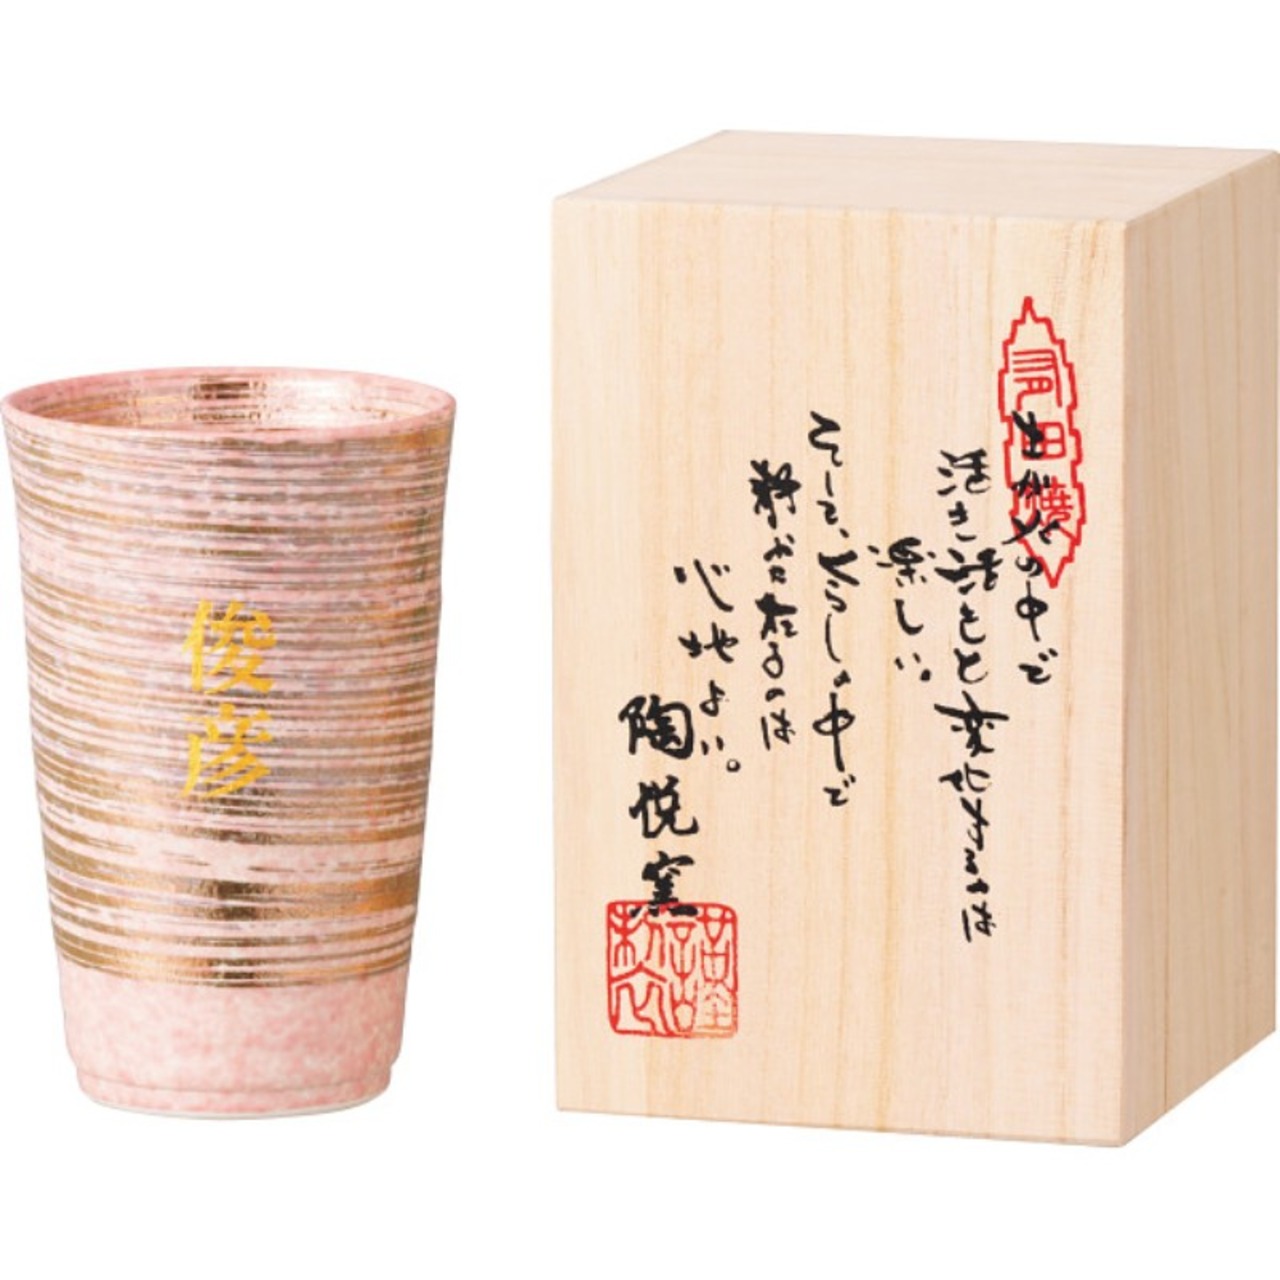 俊彦
有田焼
土が火の中で
活き活きと変化するは
楽しい。
そして、くらしの中で
静かになるのは
心地よい。
陶悦窯